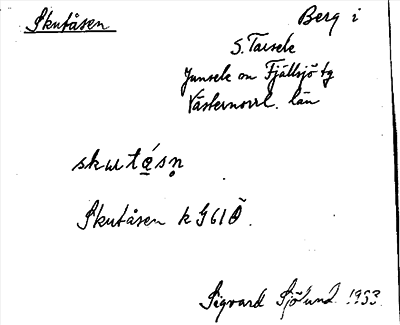 Skutåsen Berg i
S. Tåsele
Junsele och Fjällsjö tg
Västernorrl. län
skut a̱sn̥
Skutåsen k G61Ö.
Sigvard Sjölund 1953